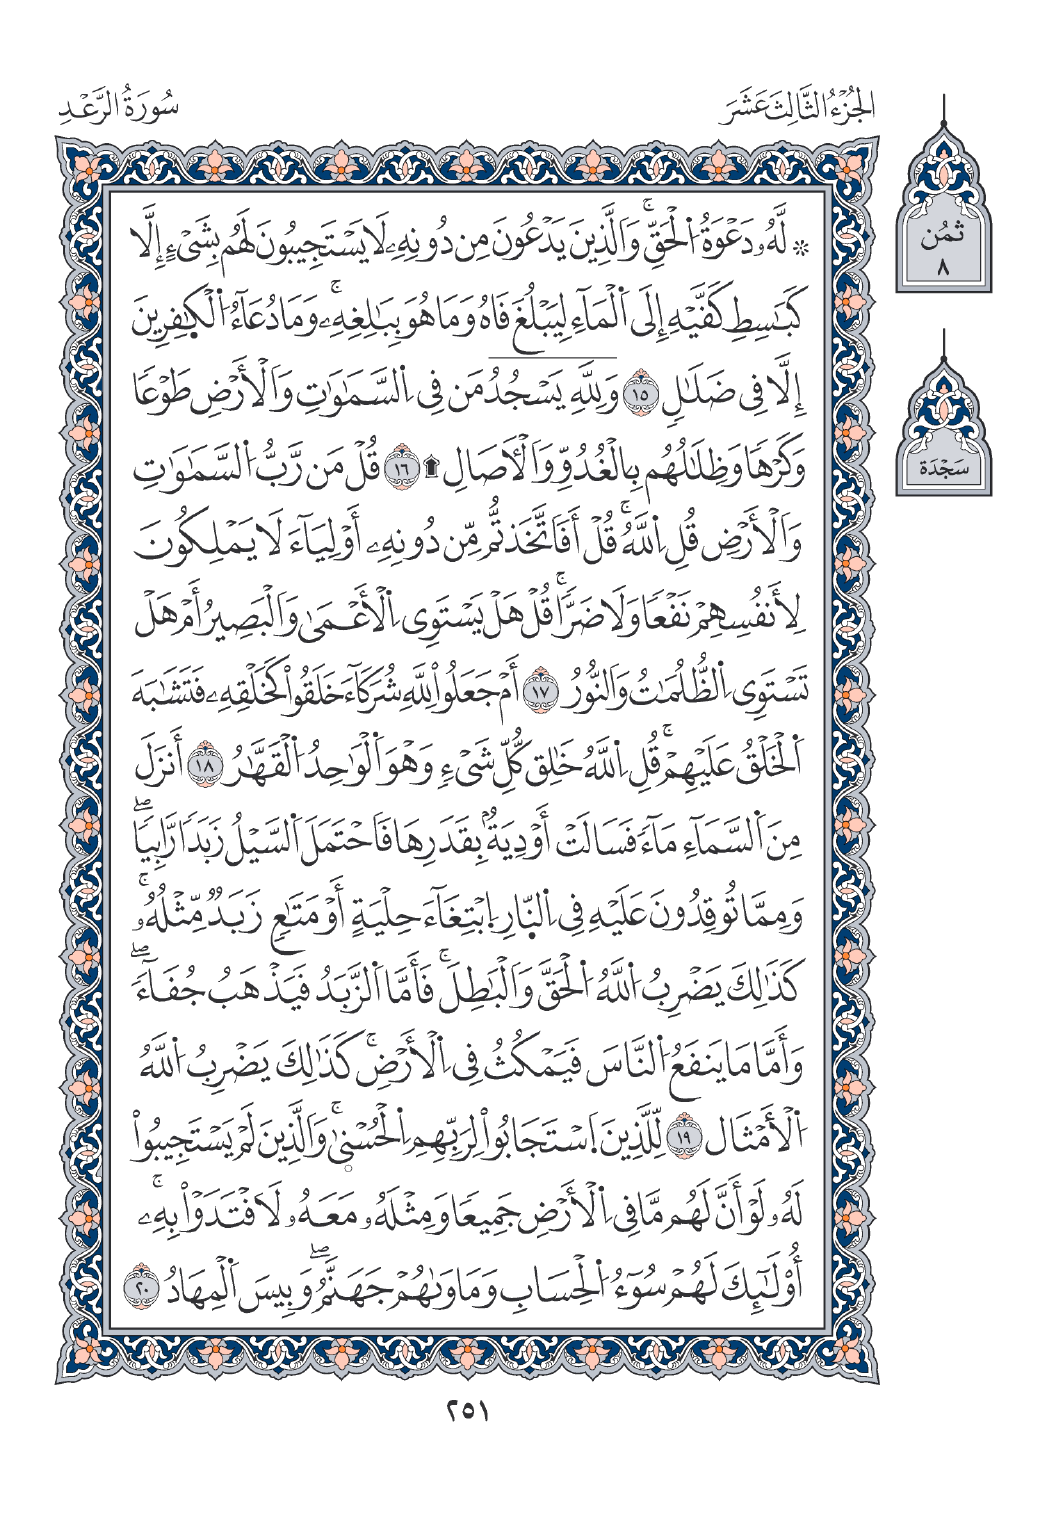 سُورَةُ الرَّعْدِ
الجُزْءُ الثَّالِثَ عَشَرَ
ثُمُن
٨
سَجْدَة
۞ لَهُۥ دَعْوَةُ اُ۬لْحَقِّۖ وَالذِينَ يَدْعُونَ مِن دُونِهِۦ لَا يَسْتَجِيبُونَ لَهُم بِشَےْءٍ اِلَّا
كَبَٰسِطِ كَفَّيْهِ إِلَى اَ۬لْمَآءِ لِيَبْلُغَ فَاهُ وَمَا هُوَ بِبَٰلِغِهِۦۚ وَمَا دُعَآءُ اُ۬لْكٰ۪فِرِينَ
إِلَّا فِے ضَلَٰلٖ ١٥ وَلِلهِ يَسْجُدُ مَن فِے اِ۬لسَّمَٰوَٰتِ وَالْأَرْضِ طَوْعاٗ
وَكَرْهاٗ وَظِلَٰلُهُم بِالْغُدُوِّ وَالْأٓصَالِ ۩ ١٦ قُلْ مَن رَّبُّ اُ۬لسَّمَٰوَٰتِ
وَالْأَرْضِ قُلِ اِ۬للَّهُۖ قُلْ أَفَاتَّخَذتُّم مِّن دُونِهِۦ أَوْلِيَآءَ لَا يَمْلِكُونَ
لِأَنفُسِهِمْ نَفْعاٗ وَلَا ضَرّاٗۖ قُلْ هَلْ يَسْتَوِے اِ۬لْأَعْمَىٰ وَالْبَصِيرُ أَمْ هَلْ
تَسْتَوِے اِ۬لظُّلُمَٰتُ وَالنُّورُ ١٧ أَمْ جَعَلُواْ لِلهِ شُرَكَآءَ خَلَقُواْ كَخَلْقِهِۦ فَتَشَٰبَهَ
اَ۬لْخَلْقُ عَلَيْهِمْۖ قُلِ اِ۬للَّهُ خَٰلِق كُّلِّ شَےْءٖ وَهْوَ اَ۬لْوَٰحِدُ اُ۬لْقَهَّٰرُ ١٨ أَنزَلَ
مِنَ اَ۬لسَّمَآءِ مَآءٗ فَسَالَتْ أَوْدِيَةُۢ بِقَدَرِهَا فَاحْتَمَلَ اَ۬لسَّيْلُ زَبَداٗ رَّابِياٗۖ
وَمِمَّا تُوقِدُونَ عَلَيْهِ فِے اِ۬لنّ۪ارِ اِ۪بْتِغَآءَ حِلْيَةٍ أَوْ مَتَٰعٖ زَبَدٞ مِّثْلُهُۥۚ
كَذَٰلِكَ يَضْرِبُ اُ۬للَّهُ اُ۬لْحَقَّ وَالْبَٰطِلَۚ فَأَمَّا اَ۬لزَّبَدُ فَيَذْهَبُ جُفَآءٗۖ
وَأَمَّا مَا يَنفَعُ اُ۬لنَّاسَ فَيَمْكُثُ فِے اِ۬لْأَرْضِۚ كَذَٰلِكَ يَضْرِبُ اُ۬للَّهُ
اُ۬لْأَمْثَالَ ١٩ لِلذِينَ اَ۪سْتَجَابُواْ لِرَبِّهِمِ اِ۬لْحُسْن۪ىٰۚ وَالذِينَ لَمْ يَسْتَجِيبُواْ
لَهُۥ لَوْ أَنَّ لَهُم مَّا فِے اِ۬لْأَرْضِ جَمِيعاٗ وَمِثْلَهُۥ مَعَهُۥ لَافْتَدَوْاْ بِهِۦۚ
أُوْلَٰٓئِكَ لَهُمْ سُوٓءُ اُ۬لْحِسَابِ وَمَاوَىٰهُمْ جَهَنَّمُۖ وَبِيسَ اَ۬لْمِهَادُ ٢٠
٢٥١